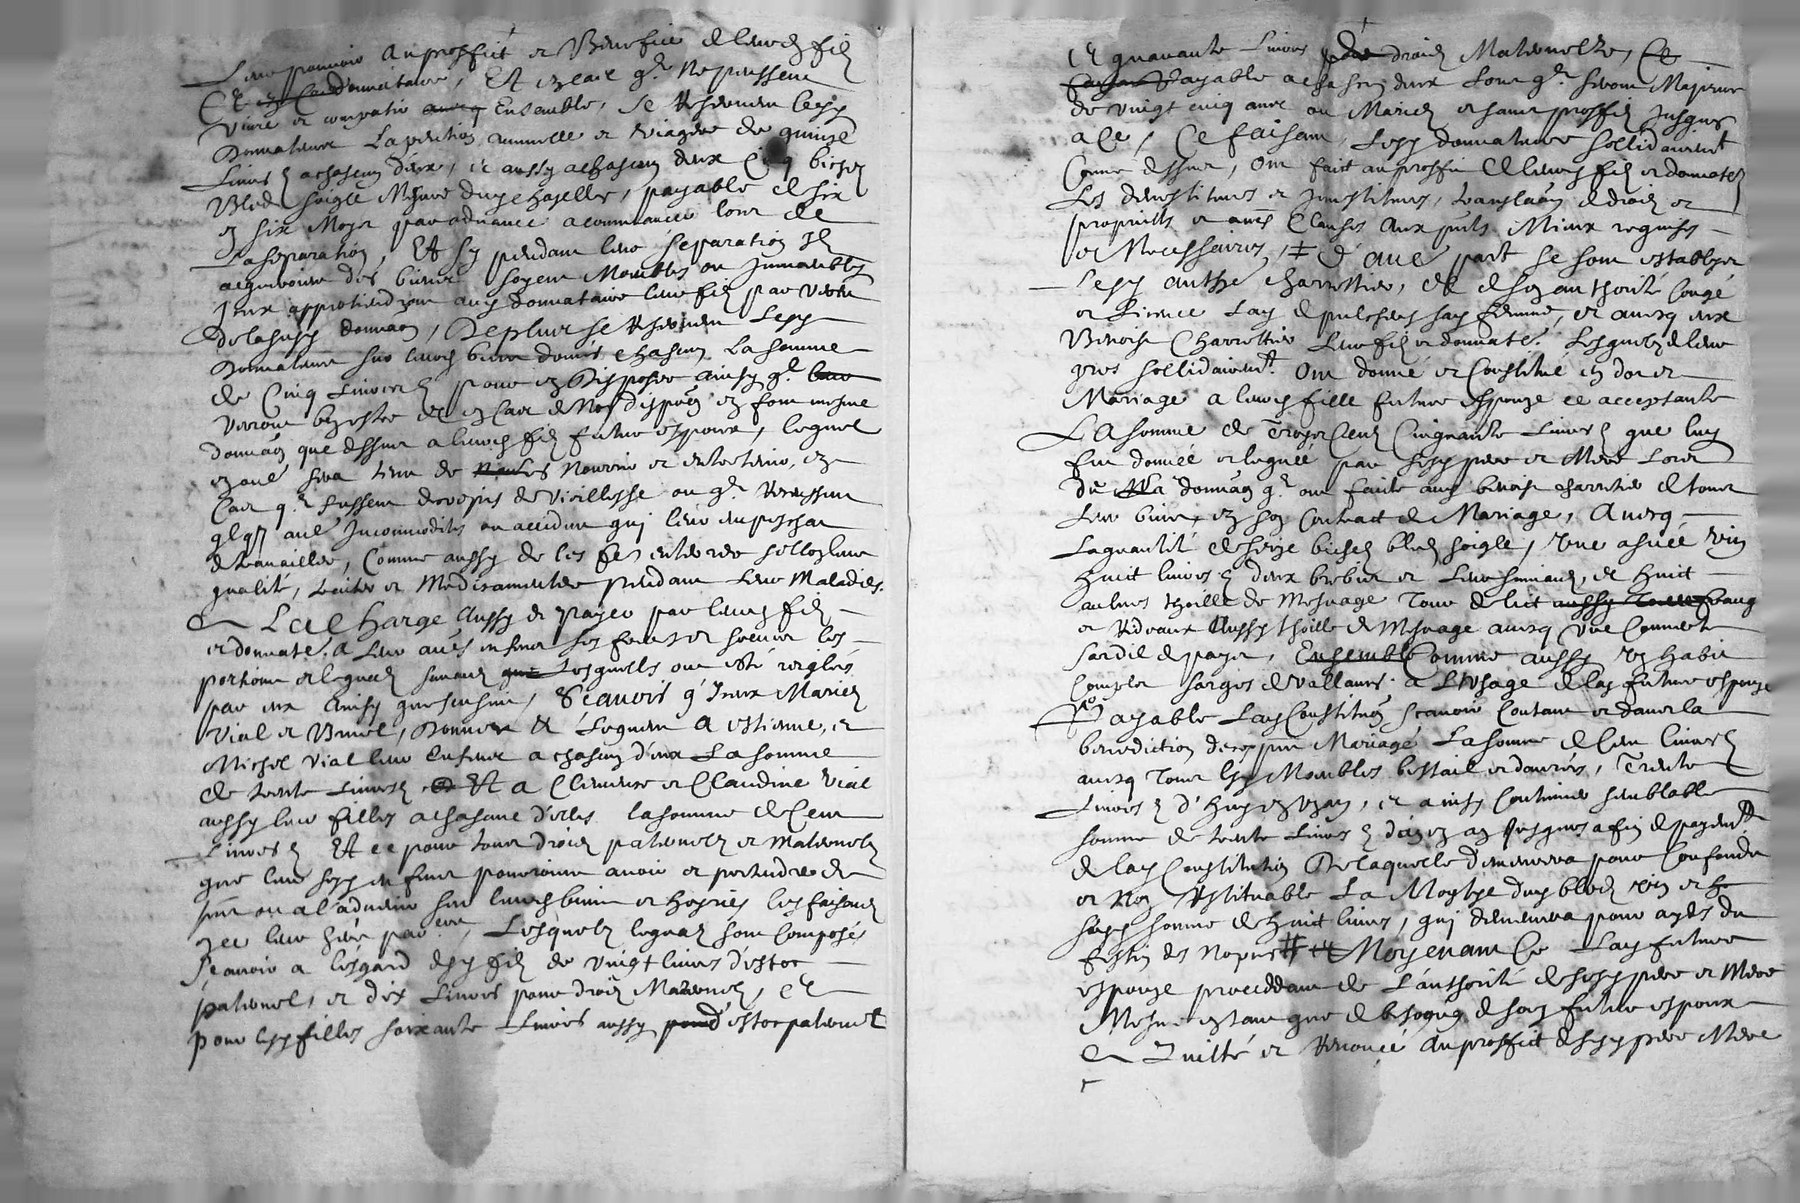 Leur pouvoir au proffict et Benefice de leurd filz
Et donnataire, Et en cas q.r ne peussent
vivre et compatir Ensemble, se reservent lesd
Donnateurs La pention annuelle et viagere de quinze
Livres a chascun d'eux, et aussy a chascun d'eux Cinq bichetz
Bled soigle mesure dud payable de six
en six Moys par advance a commancer lors de
La separation, Et sy pendant leur separation Ilz
acquierent des biens soyent Meubles ou Immeubles
Iceux approtiendront aud donnataire leur filz par vertu
de lasusd donnaon, De plus se reservent Lesd
Donnateurs sur leursd biens donnés chascun La somme
de Cinq Livres pour en Disposer ainsy q.l
verront et en Cas de Non dispoon en font mesme
donnaon que dessus a leurd filz futur espoux, lequel
en oultre sera tenu de Nourrir et entretenir, en
Cas q.r fussent de vieillesse ou q.r eussent
ault Incommodités ou accident quj leur empeschat
de travailler, Comme aussy de les fere enterrer sellon leur
qualité, et Medicamenter pendant Leur Maladies.
La Charge Aussy de payer par leurd filz
et donnaté. a Leur aultres enfans ses freres et soeurs les
portions et legatz suivantz Lesquels ont esté reiglés
par eux ainsy que sensuit, Scavoir q' Iceux Mariez
Vial et Brunel, Donnent & Leguent A estienne, et
Michel Vial leur Enfans a chascun d'eux La somme
de trente Livres Et A Clemence et Claudine Vial
aussy leur filles a chascune d'elles la somme de Cent
Livres Et ce pour tous droictz paternelz et Maternelz
que leur sesd enfans pourroient avoir et pretendre de
p̄nt ou a l'advenir sur leursd biens et hoyries les faisantz
en ce leur hers par eux, Lesquelz legatz sont Composés
Scavoir a l'esgard desd filz de vingt livres d'estoc
paternel, et dix Livres pour droictz Maternelz, et
pour lesd filles soixante Livres aussy d'estoc paternel
Et quarante Livres droictz Maternelz, Ce
Payable a chascun d'eux Lors q.r seront Majeurs
de vingt cinq ans ou Mariez et sans proffitz Jusques
a Ce, Ce faisant, Lesd donnateurs sollidairemt
Comme dessus, ont faict au proffit de leurd filz et donnaté
Les devestitures et Investitures, translaon de droictz et
proprietés et aultres Clauses Aux p̄nts Mieux requises
et Necessaires, ‡ D'aultre part se sont establys
Lesd Anthe Charrettier, et de son authorité Congé
et Licence Lad sad femme, et avecq eux
Benoist Charrettier Leur filz et donnaté. Lesquelz de leur
gres sollidairemt. Ont donné et Constitué en dot et
Mariage a leurd fille future espouze ce acceptante
LA somme de Troys Centz Cinquante Livres que luy
fut donnée et leguée par sesd pere et Mere Lors
de La donnaon q.r ont faicte aud benoist charretier de tous
Leur biens, en son Contract de Mariage, Avecq
La quantité de seize bichetz bled soigle, Une asnée vin
huict livres deux brebis et Leur suivantz, et huict
aulnes thoille de Mesnage Tour de lict
et Rideaux Aussy thoille de Mesnage avecq une Couverte
de pays, Comme aussy Un habit
Complet sarges de Vallance. a L'usage de lad future espouze
Payable Lad Constituon Scavoir Contant et davant la
benediction de ce p̄nt Mariage La somme de Cent livres
avecq Tous lesd Meubles bestail et danrées, Trente
Livres d'huy en Un an, et ainsy Continuer semblable
somme de trente Livres d'an en an Jusques a fin de payemt.
de lad Constitution De laquelle demeurera pour Confondu
et Non restituable La Moytye dud bled vin et
sad somme de huict livres, quj demeurera pour aydes du
festin des Nopces Moyenant Ce Lad future
espouze proceddant de L'authorité de sesd pere et Mere
Mesme en tant que de besoing de son futur espoux
A Quitté et renoncé Au proffict desesd pere Mere